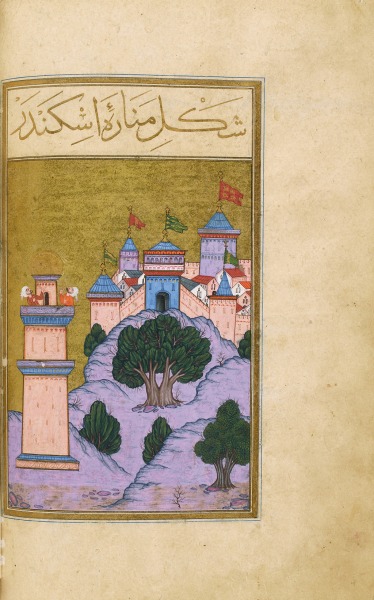 شكل منارهٔ اسكندر